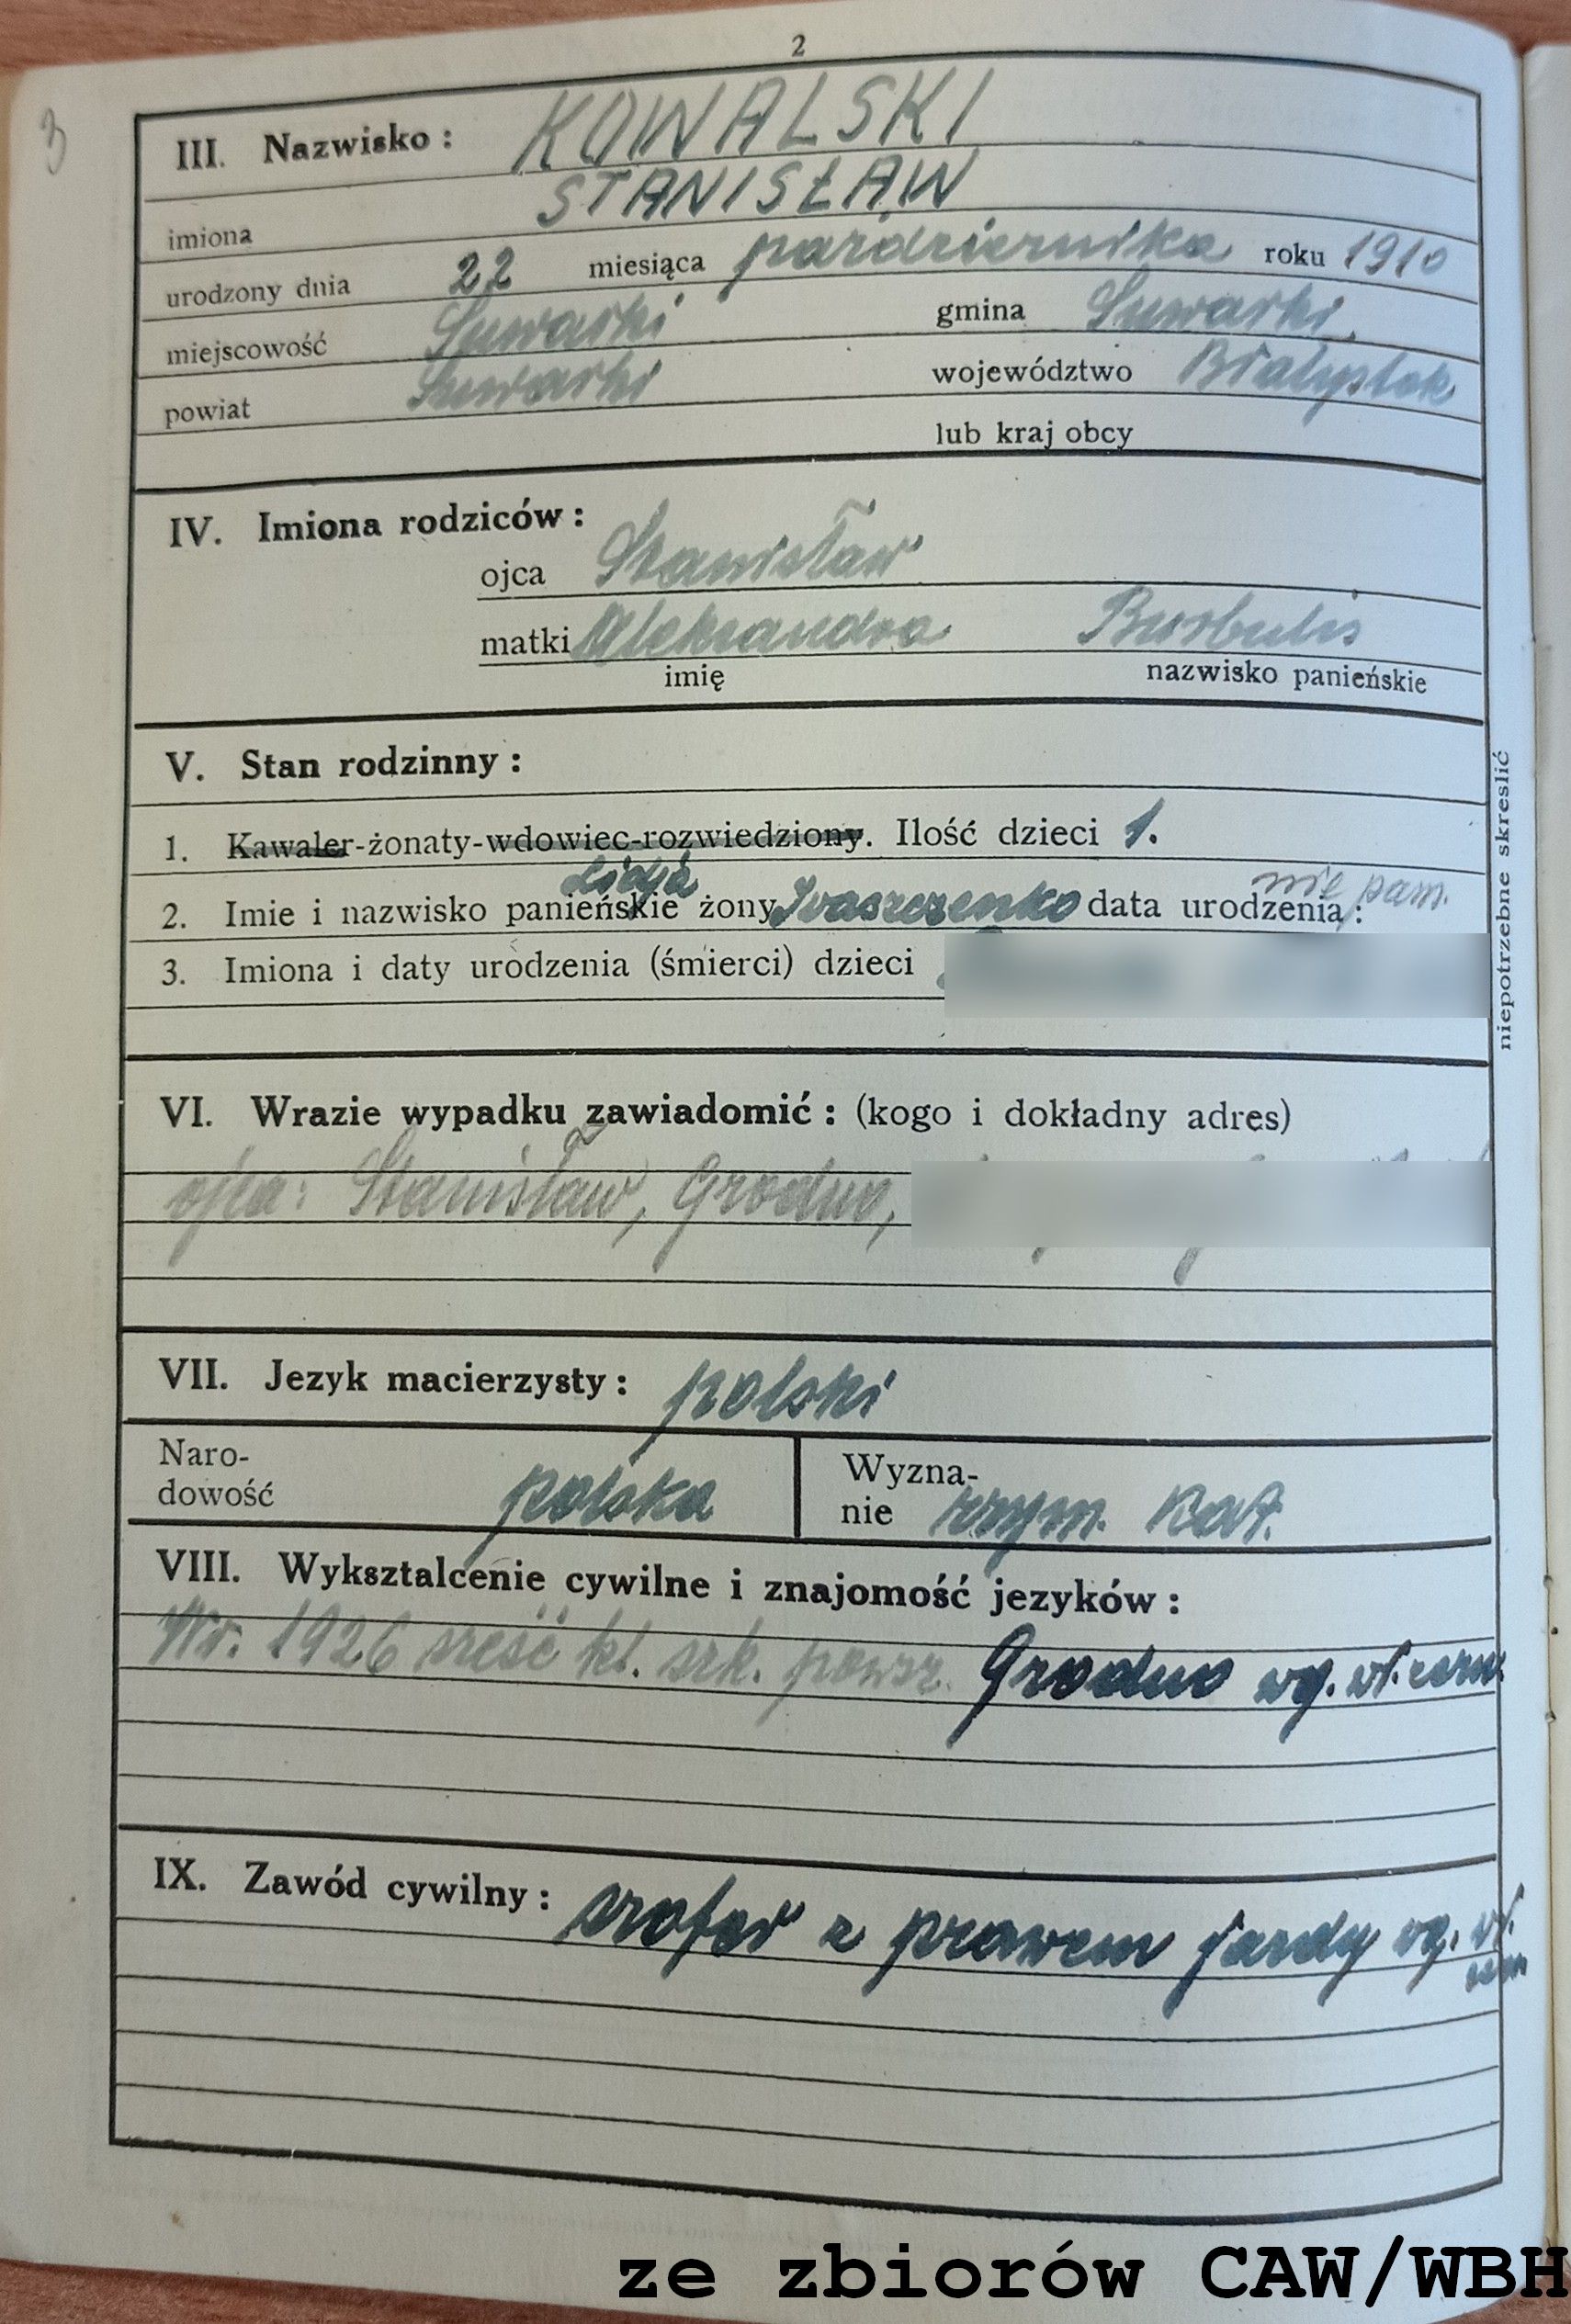 2
3
III. Nazwisko: KOWALSKI
imiona STANISŁAW
urodzony dnia 22 miesiąca października roku 1910
miejscowość Suwałki gmina Suwałki
powiat Suwałki województwo Białystok
lub kraj obcy
IV. Imiona rodziców:
ojca Stanisław
matki Aleksandra Burbulis
imię nazwisko panieńskie
V. Stan rodzinny:
1. Kawaler-żonaty-wdowiec-rozwiedziony. Ilość dzieci 1.
Lidja nie pam.
2. Imie i nazwisko panieńskie żony Iwaszczenko data urodzenia:
3. Imiona i daty urodzenia (śmierci) dzieci
niepotrzebne skreslić
VI. Wrazie wypadku zawiadomić: (kogo i dokładny adres)
ojca: Stanisław, Grodno,
VII. Jezyk macierzysty: polski
Naro-
dowość polska
Wyzna-
nie rzym. kat.
VIII. Wyksztalcenie cywilne i znajomość jezyków:
W r. 1926 sześć kl. szk. powsz. Grodno wg. wł. zezn.
IX. Zawód cywilny: szofer z prawem jazdy wg. wł.
zezn
ze zbiorów CAW/WBH